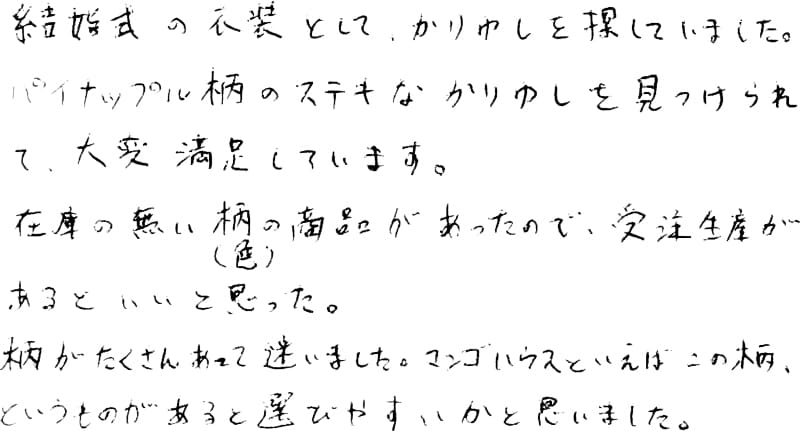 結婚式の衣装として、かりゆしを探していました。
パイナップル柄のステキなかりゆしを見つけられ
て、大変満足しています。
在庫の無い柄の商品があったので、受注生産が
(色)
あるといいと思った。
柄がたくさんあって迷いました。マンゴハウスといえばこの柄、
というものがあると選びやすいかと思いました。